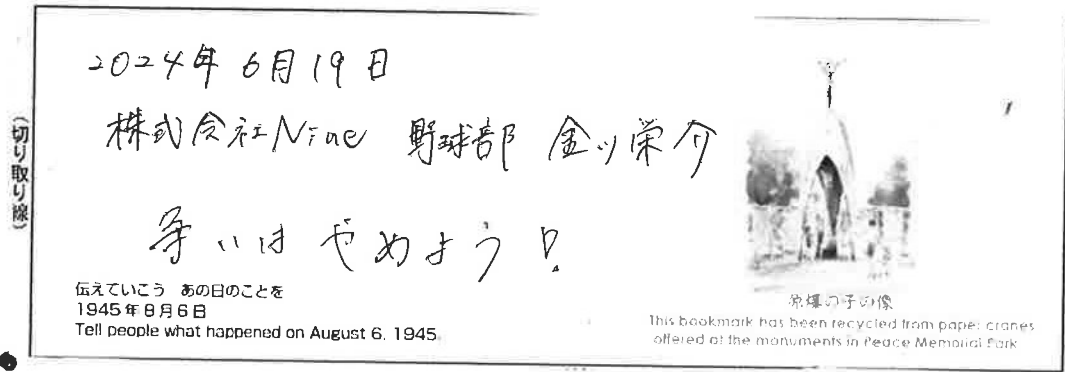 (切り取り線)
2024年 6月19日
株式会社Nine 野球部 金ッ栄介
争いは やめよう!
伝えていこう あの日のことを
1945年8月6日
Tell people what happened on August 6, 1945.
原爆の子の像
This bookmark has been recycled from paper cranes
offered at the monuments in Peace Memorial Park